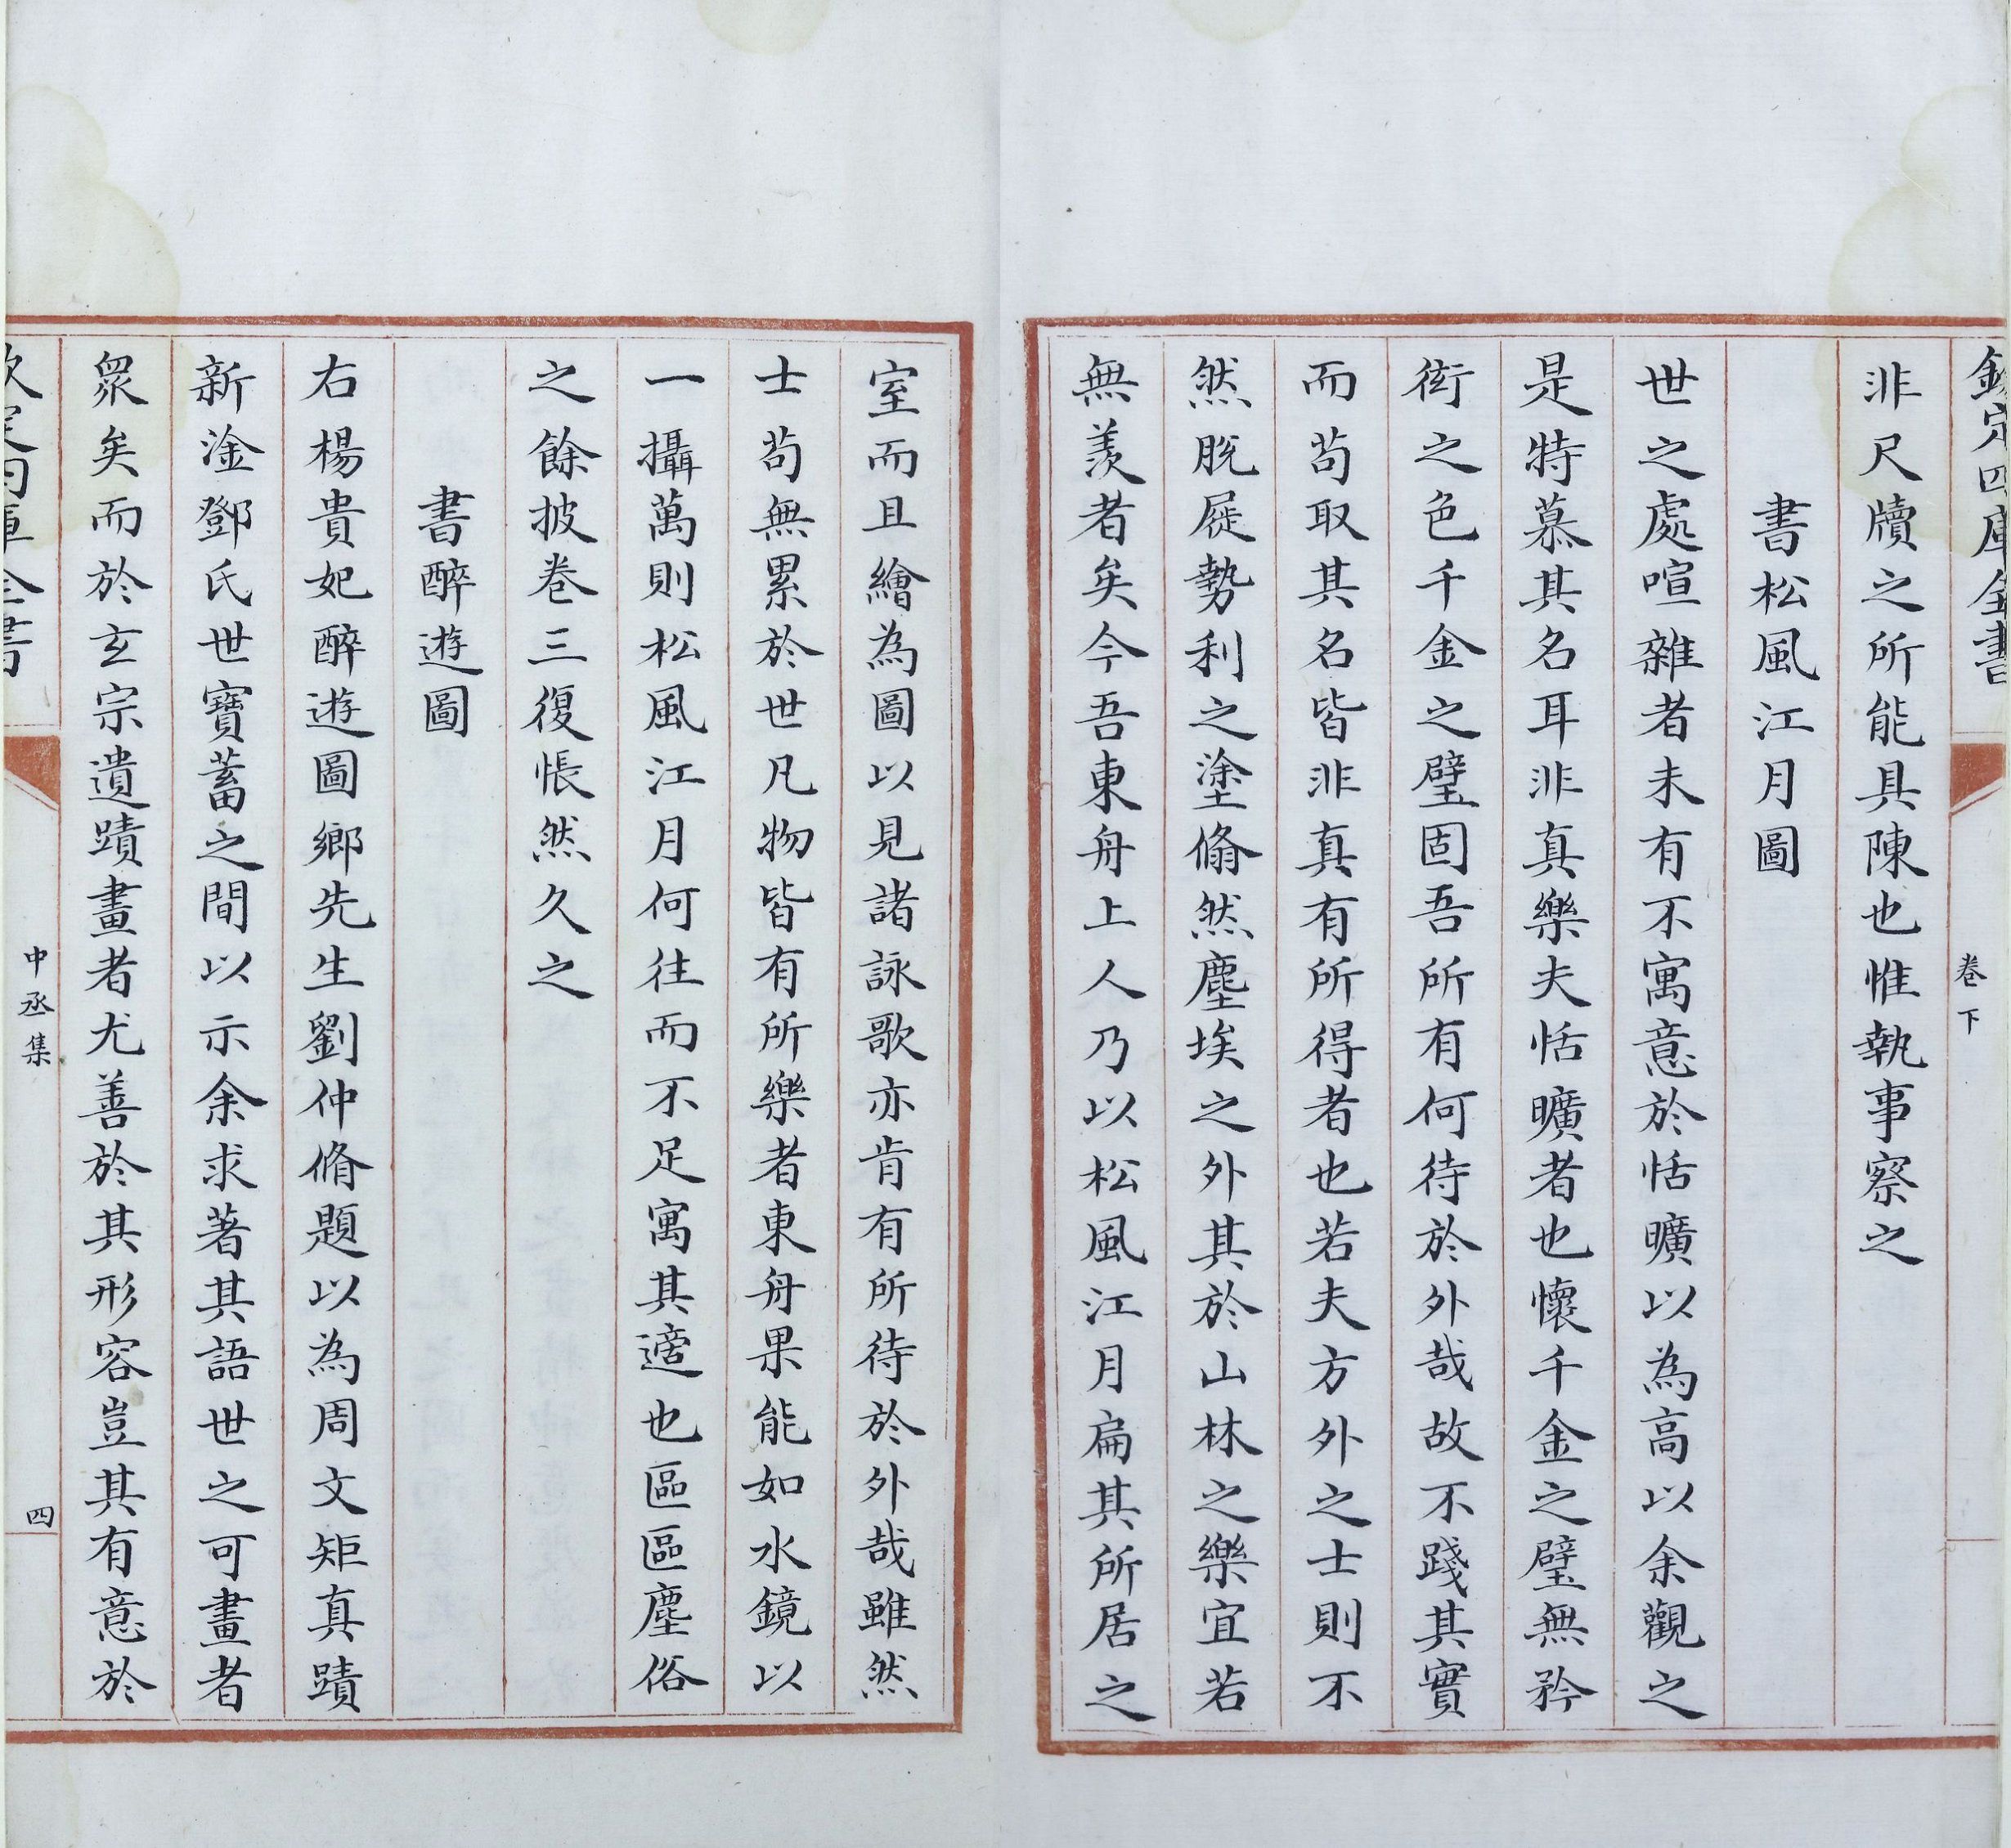 欽定四庫全書
卷下
非尺牘之所能具陳也惟執事察之
書松風江月圖
世之處喧雜者未有不寓意於恬曠以為高以余觀之
是特慕其名耳非真樂夫恬曠者也懷千金之璧無矜
衒之色千金之璧固吾所有何待於外哉故不踐其實
而苟取其名皆非真有所得者也若夫方外之士則不
然脫屣勢利之塗翛然塵埃之外其於山林之樂宜若
無羨者矣今吾東舟上人乃以松風江月扁其所居之
室而且繪為圖以見諸詠歌亦肯有所待於外哉雖然
士苟無累於世凡物皆有所樂者東舟果能如水鏡以
一攝萬則松風江月何往而不足寓其適也區區塵俗
之餘披卷三復悵然久之
書醉遊圖
右楊貴妃醉遊圖鄉先生劉仲脩題以為周文矩真蹟
新淦鄧氏世寶蓄之間以示余求著其語世之可畫者
衆矣而於玄宗遺蹟畫者尤善於其形容豈其有意於
欽定四庫全書
中丞集
四